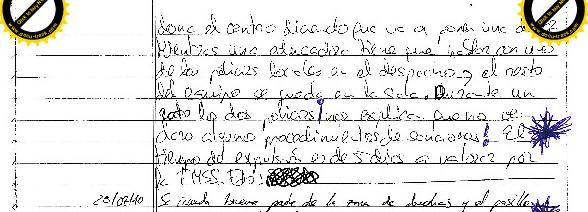 zona el centro diciendo que va a poner una
Mientras una educadora tiene que hablar con uno
de los policías locales en el despacho y el resto
del equipo se queda en la sala. Durante un
rato los dos policías nos explica que no ve
claro alguno procedimientos de sanciones! El
tiempo de expulsión es de 5 días a valorar por
la TMSS.
28/07/10 Se inunda buena parte de la zona de duchas y el pasillo